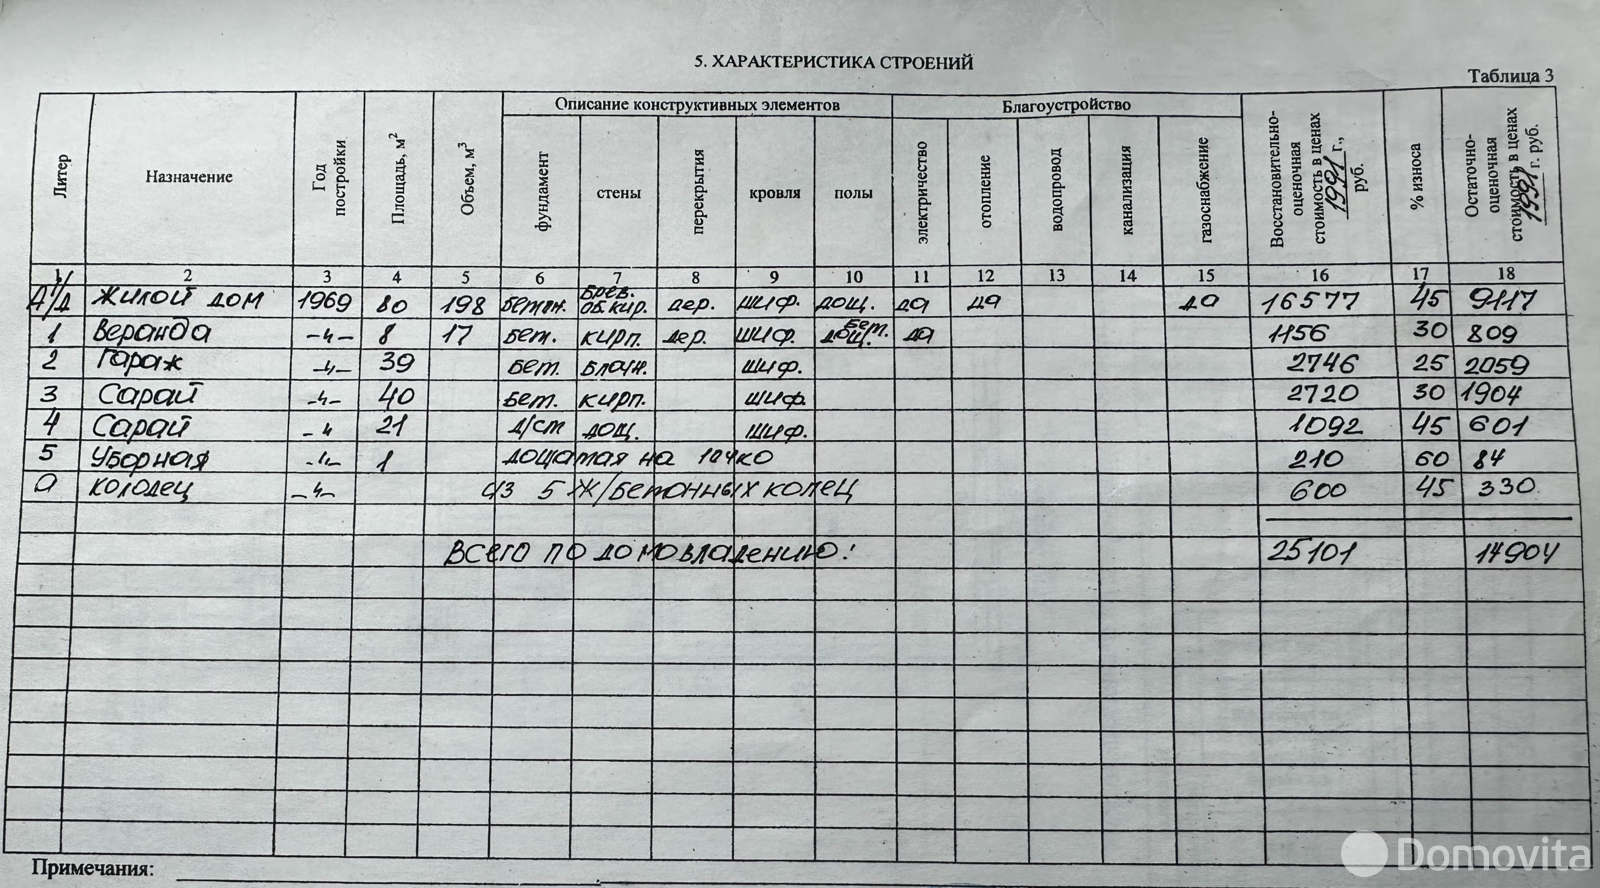 5. ХАРАКТЕРИСТИКА СТРОЕНИЙ
Таблица 3
Литер Назначение Год постройки Площадь, м² Объем, м³ Описание конструктивных элементов Благоустройство Восстановительно-оценочная стоимость в ценах 1991 г., руб. % износа Остаточно-оценочная стоимость в ценах 1991 г. руб.
фундамент стены перекрытия кровля полы электричество отопление водопровод канализация газоснабжение
2 3 4 5 6 7 8 9 10 11 12 13 14 15 16 17 18
жилой дом 1969 80 198 бетон. брев. об.кир. дер. шиф. дощ. да да да 16577 45 9117
1 Веранда -"- 8 17 бет. кирп. дер. шиф. бет. дощ. да 1156 30 809
2 Гараж -"- 39 бет. блочн. шиф. 2746 25 2059
3 Сарай -"- 40 бет. кирп. шиф. 2720 30 1904
4 Сарай -" 21 д/ст дощ. шиф. 1092 45 601
5 Уборная -"- 1 дощатая на 1очко 210 60 84
а колодец -"- из 5 ж/бетонных колец 600 45 330
ВСЕГО ПО ДОМОВЛАДЕНИЮ: 25101 14904
Примечания:
Domovita